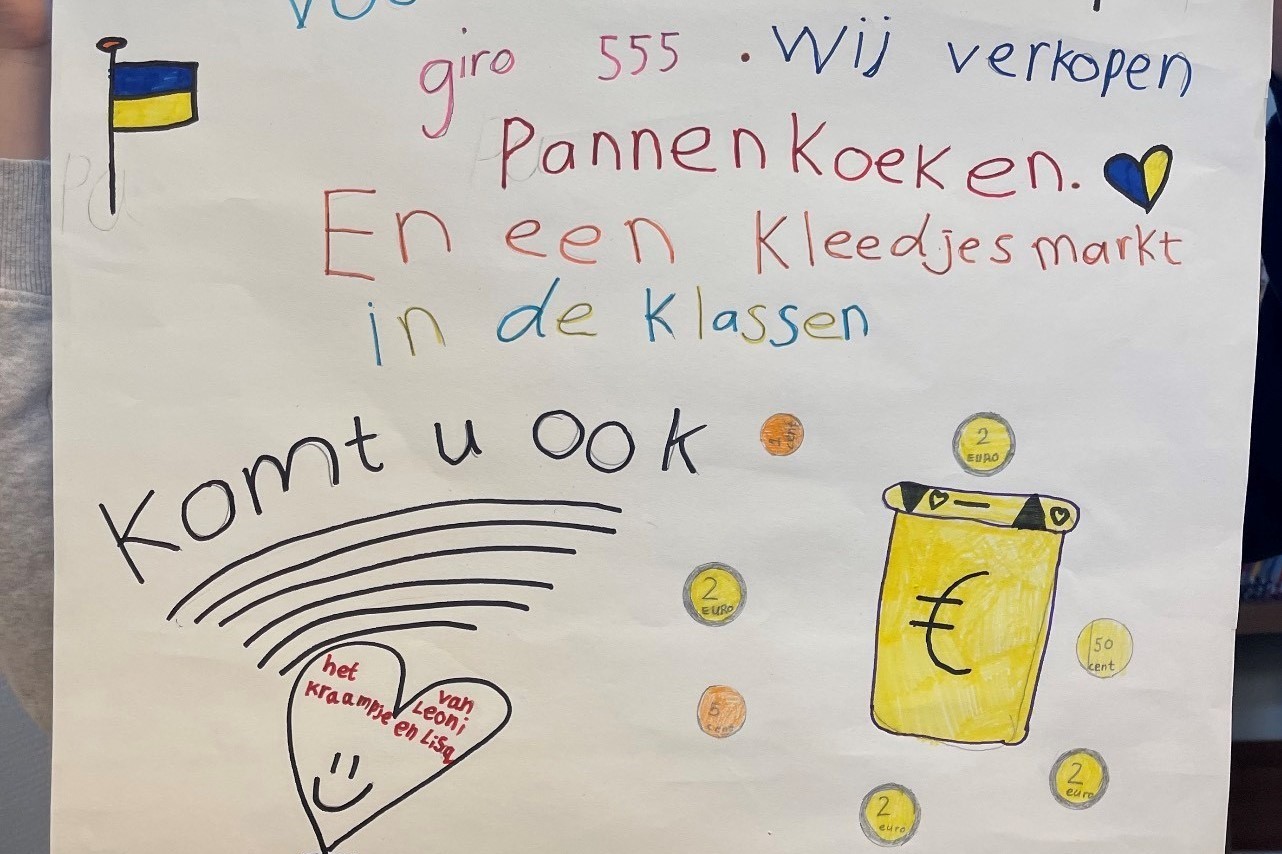 giro 555. Wij verkopen
Pannenkoeken.
En een Kleedjesmarkt
in de klassen
Komt u ook
het
kraampje
van
Leoni
en Lisa
2
EURO
€
2
EURO
50
cent
5
cent
2
euro
2
euro